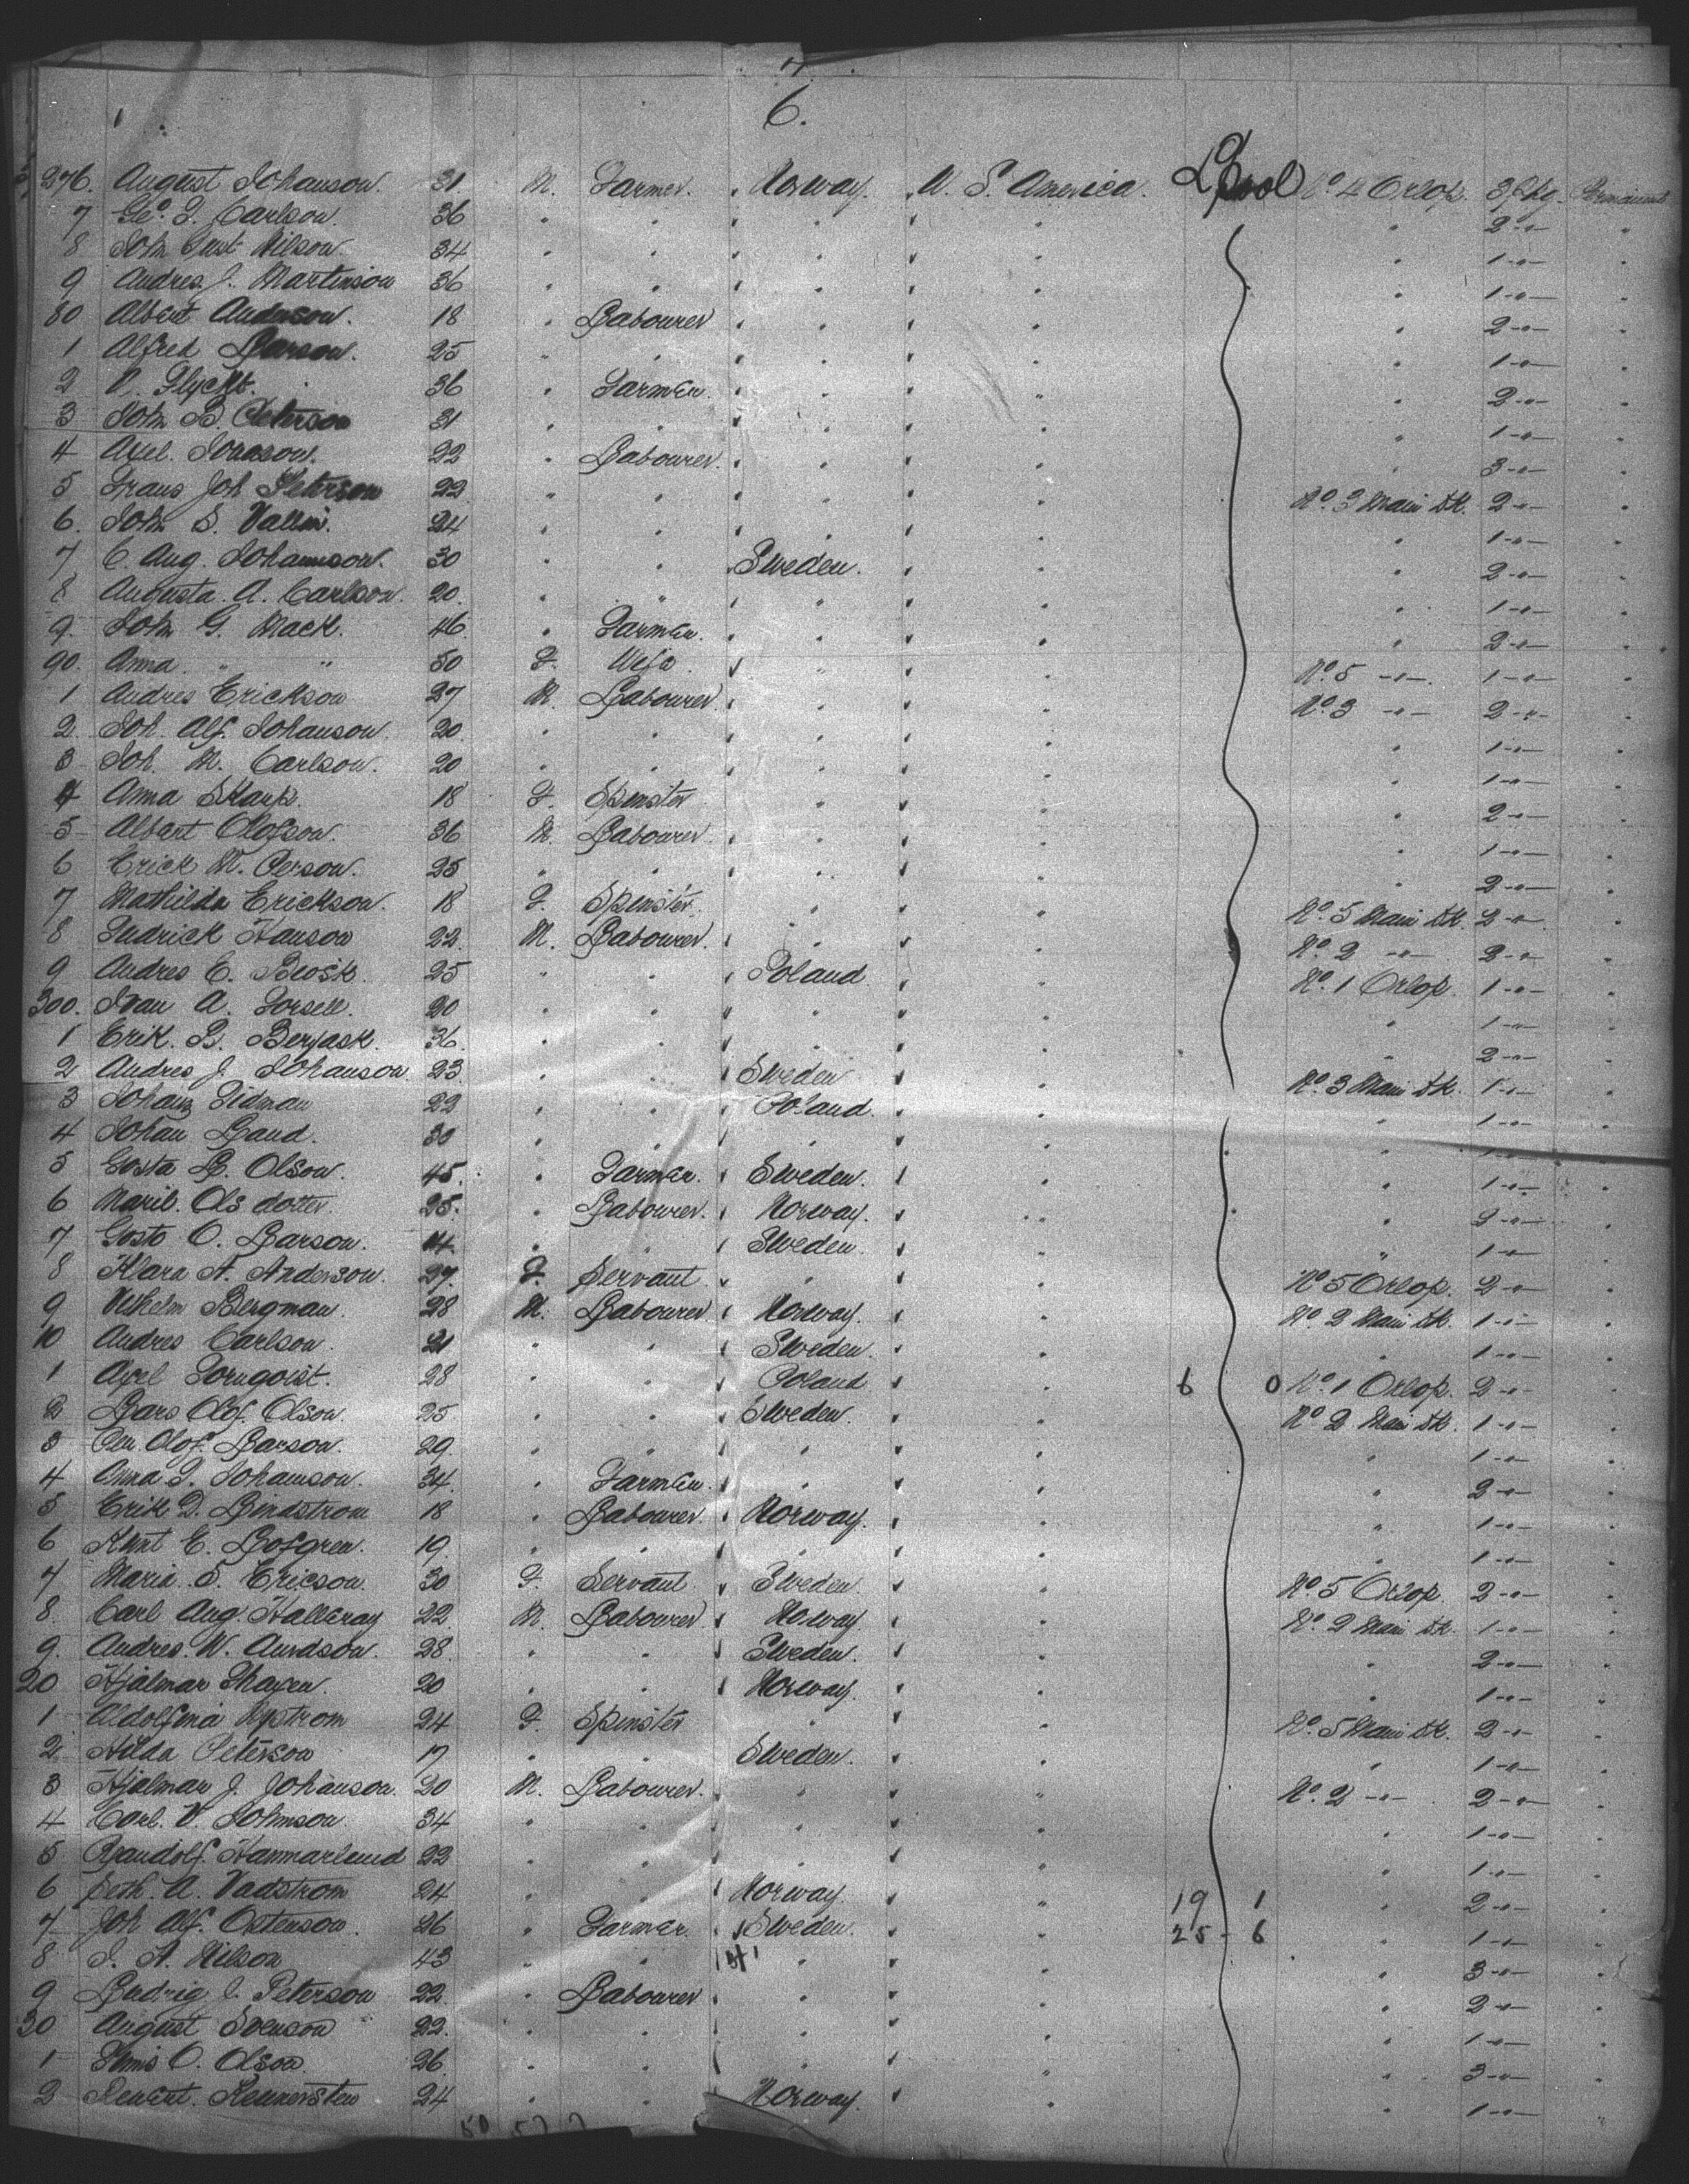 6.
276. August Johanson. 31. M. Farmer. Norway. U. S. America. L'pool No. 4 Orlop. 3 Pkg.
7 Geo. F. Carlson. 36 " " " " " 2 -"-
8 John Gust Nilson. 34 " " " " " 1 -"-
9 Andres J. Martinson 36 " " " " " 1 -"-
80 Albert Anderson. 18 " Labourer " " " 2 -"-
1 Alfred Larson. 25 " " " " " 1 -"-
2 Flycht. 36 " Farmer. " " " 2 -"-
3 John B. Peterson 31 " " " " " 1 -"-
4 Axel. Jonason. 22 " Labourer. " " " 3 -"-
5 Frans Joh Peterson 22 " " " " No. 3 Main Dk. 2 -"-
6. John S. Vallin. 24 " " " " " 1 -"-
7 C. Aug. Johannson. 30 " " Sweden. " " 2 -"-
8 Augusta. A. Carlson. 20. " " " " " 1 -"-
9. John G. Mack. 46. " Farmer. " " " 2 -"-
90. Anna " " 50 F. Wife " " No. 5 -"- 1 -"-
1 Andres Erickson 27 M. Labourer. " " No. 3 -"- 2 -"-
2. Joh. Alf. Johanson. 20. " " " " " 1 -"-
3 Joh. M. Carlson. 20 " " " " " 1 -"-
4 Anna Skarp. 18 F. Spinster " " " 2 -"-
5 Albert Olofson. 36 M. Labourer. " " " 1 -"-
6 Erick M. Person. 25 " " " " " 2 -"-
7 Mathilda Erickson. 18 F. Spinster. " " No. 5 Main Dk. 2 -"-
8 Hanson 22. M. Labourer. " " No. 2 -"- 2 -"-
9 Andres E. 25 " " Poland " No. 1 Orlop. 1 -"-
300. Ivan A. Forsell. 20 " " " " " 1 -"-
1 Erik. B. 36. " " " " " 2 -"-
2 Andres J. Johanson. 23. " " Sweden " No. 3 Main Dk. 1 -"-
3 Johan Lidman 22 " " Poland. " " 1 -"-
4 Johan Land. 30 " " " " " 1 -"-
5 Gosta L. Olson. 45. " Farmer. Sweden. " " 1 -"-
6 Marit. Ols dotter. 25. " Labourer. Norway. " " 3 -"-
7 Gosto O. Larson. 14. " " Sweden. " " 1 -"-
8 Klara A. Anderson. 27. F. Servant. " " No 5 Orlop. 2 -"-
9 Vilhelm Bergman. 28 M. Labourer. Norway. " No. 2 Main Dk. 1 -"-
10 Andres Carlson. 21 " " Sweden. " " 1 -"-
1 Axel Tornqvist. 28 " " Poland " 6 0 No. 1 Orlop. 2 -"-
2 Lars Olof. Olson 25. " " Sweden. " No 2 Main Dk. 1 -"-
3 Per. Olof. Larson. 29. " " " " " 1 -"-
4 Anna Johanson. 34. " Farmer. " " " 2 -"-
5 Erik D. Lindstrom 18 " Labourer. Norway. " " 1 -"-
6 Knut E. Lofgren. 19. " " " " " 1 -"-
7 Maria. S. Ericson. 30 F. Servant Sweden. " No. 5 Orlop. 2 -"-
8. Carl Aug. 22. M. Labourer. Norway. " No. 2 Main Dk. 1 -"-
9. Andres. W. 28. " " Sweden. " " 2 -"-
20 Hjalmar 20 " " Norway. " " 1 -"-
1 Aldolfina Nystrom 24 F. Spinster " " No. 5 Main Dk. 2 -"-
2 Hilda Peterson 17 " " Sweden. " " 1 -"-
3 Hjalmar J. Johanson. 20 M. Labourer. " " No. 2 -"- 2 -"-
4 Carl. V. Johnson 34 " " " " " 1 -"-
5 Randolf. Hammarlund 22 " " " " " 1 -"-
6 Seth. A. Vadstrom 24. " " Norway. " 19 1 " 2 -"-
7 Joh Alf. Osterson. 26 " Farmer. Sweden. " 25 - 6 " 1 -"-
8 J. A. Nilson 43 " " " " " 3 -"-
9 Ludvig J. Peterson 22. " Labourer " " " 2 -"-
30 August Svenson 22. " " " " " 1 -"-
1 O. Olson 26. " " " " " 3 -"-
2 24 " " Norway. " " 1 -"-